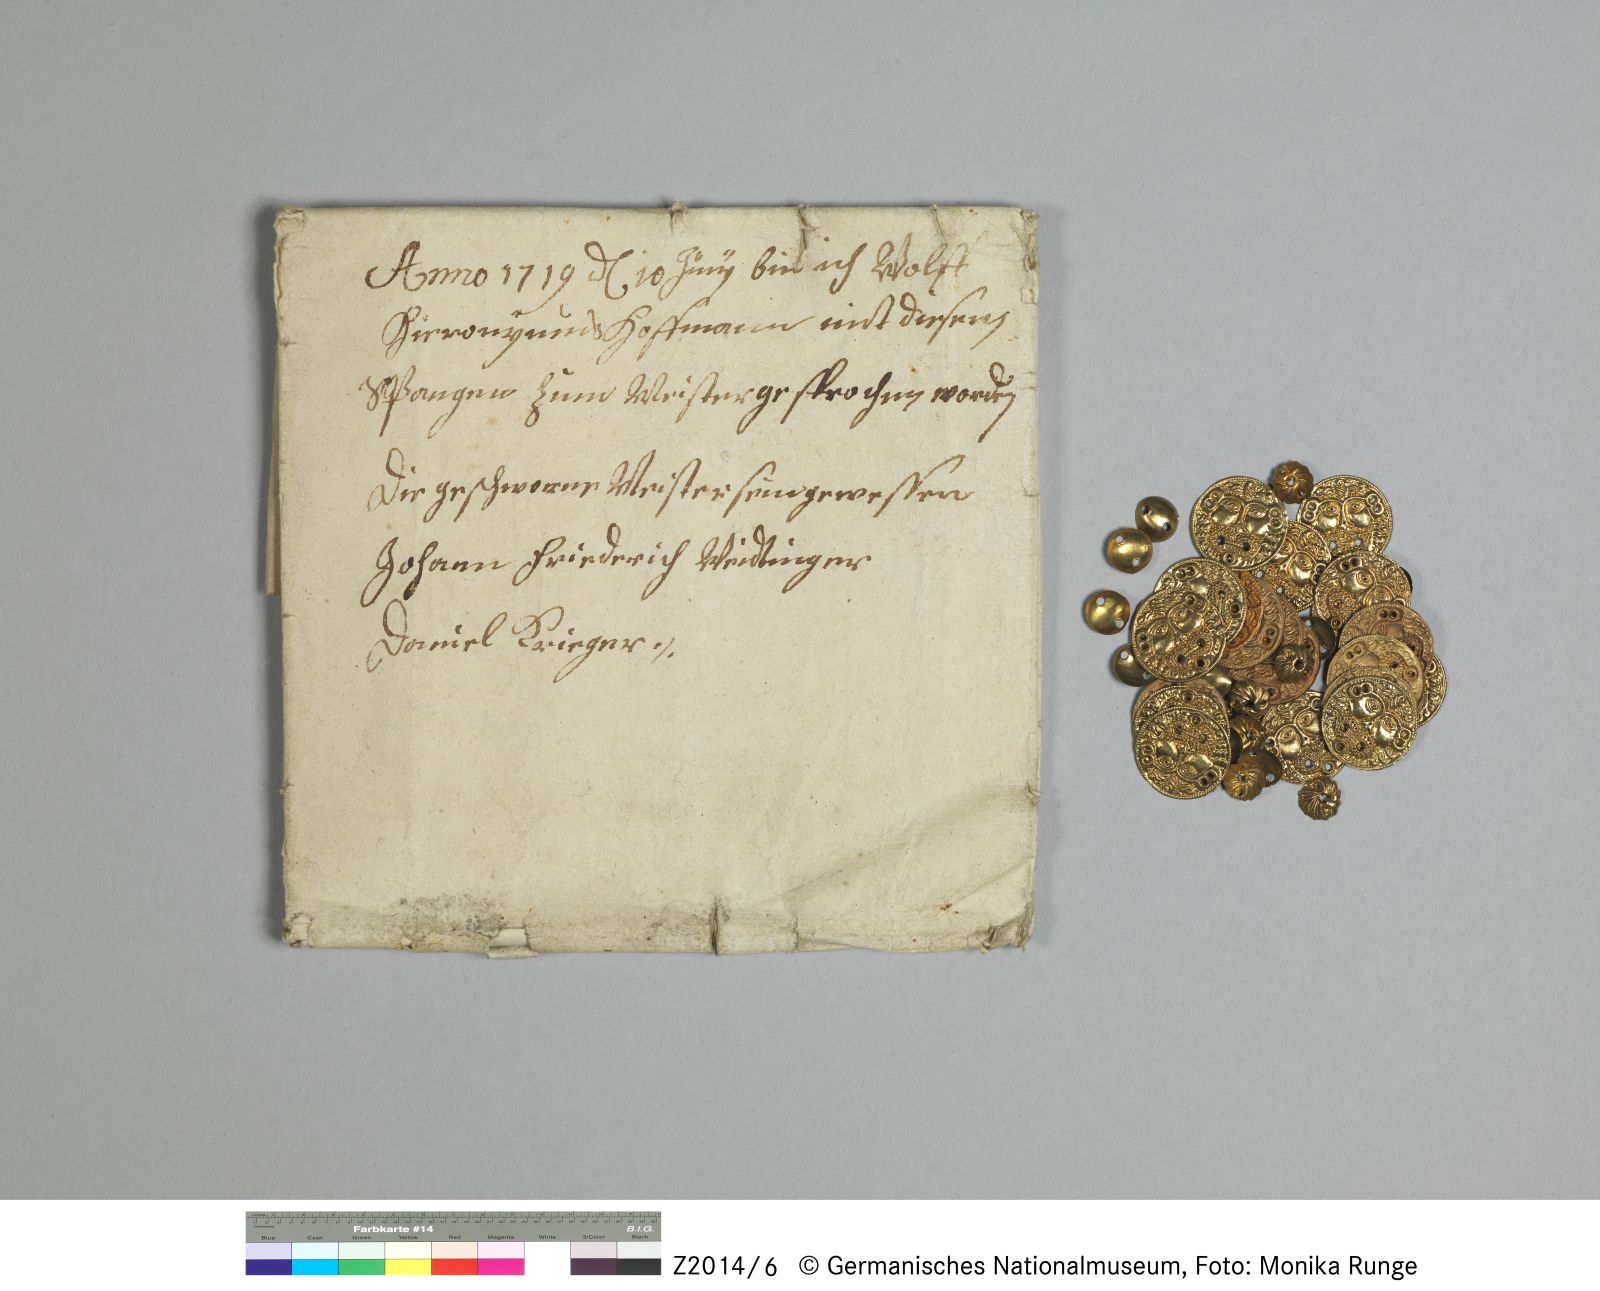 Anno 1719 d 10 Juny bin ich Wolff
Hieronymus Hoffmann mit diesen
Spangen zum Meister gesprochen worden
Die geschworne Meister sein gewessen
Johann Friederich Weidinger
Daniel Krieger
Farbkarte #14
B.I.G.
Blue Cyan Green Yellow Red Magenta White 3/Color Black
Z2014/6 © Germanisches Nationalmuseum, Foto: Monika Runge